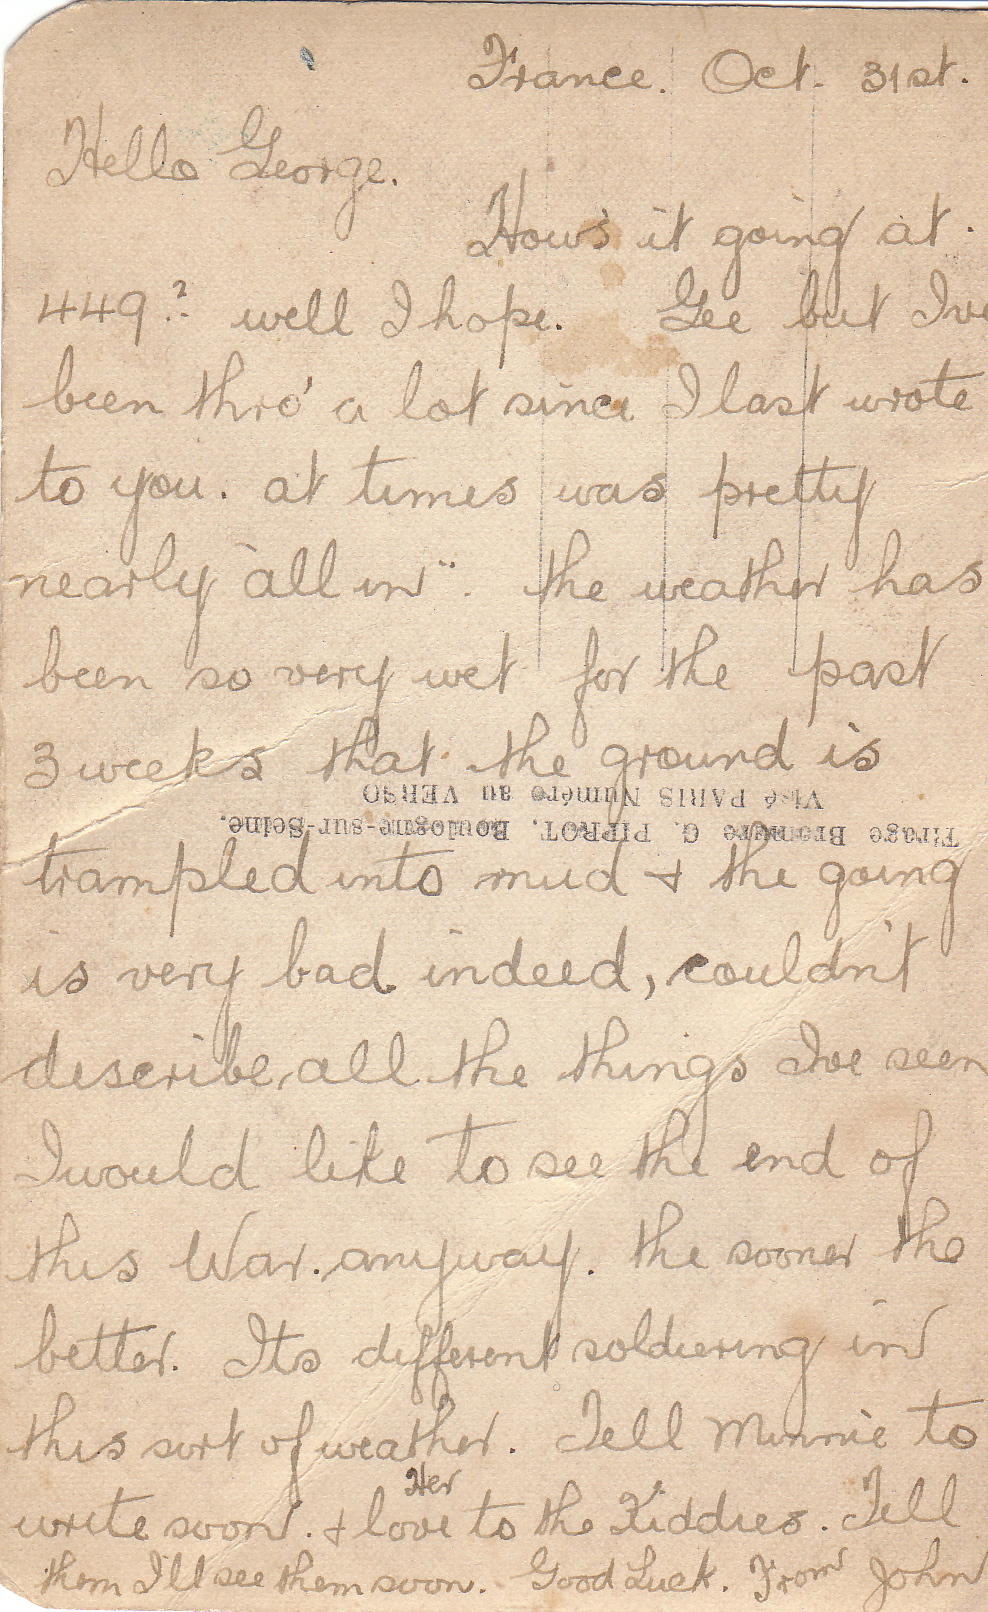 France. Oct. 31st.
Hello George.
How's it going at.
449? well I hope. Gee but I've
been thro' a lot since I last wrote
to you. at times was pretty
nearly "all in". the weather has
been so very wet for the past
3 weeks that the ground is
Visé PARIS Numéro au VERSO
Tirage Bromure G. PIPROT. Boulogne-sur-Seine.
trampled into mud + the going
is very bad indeed, couldn't
describe all the things I've seen
I would like to see the end of
this War. anyway. the sooner the
better. Its different soldiering in
this sort of weather. Tell Minnie to
Her
write soon. + love to the Kiddies. Tell
them I'll see them soon. Good Luck. From John